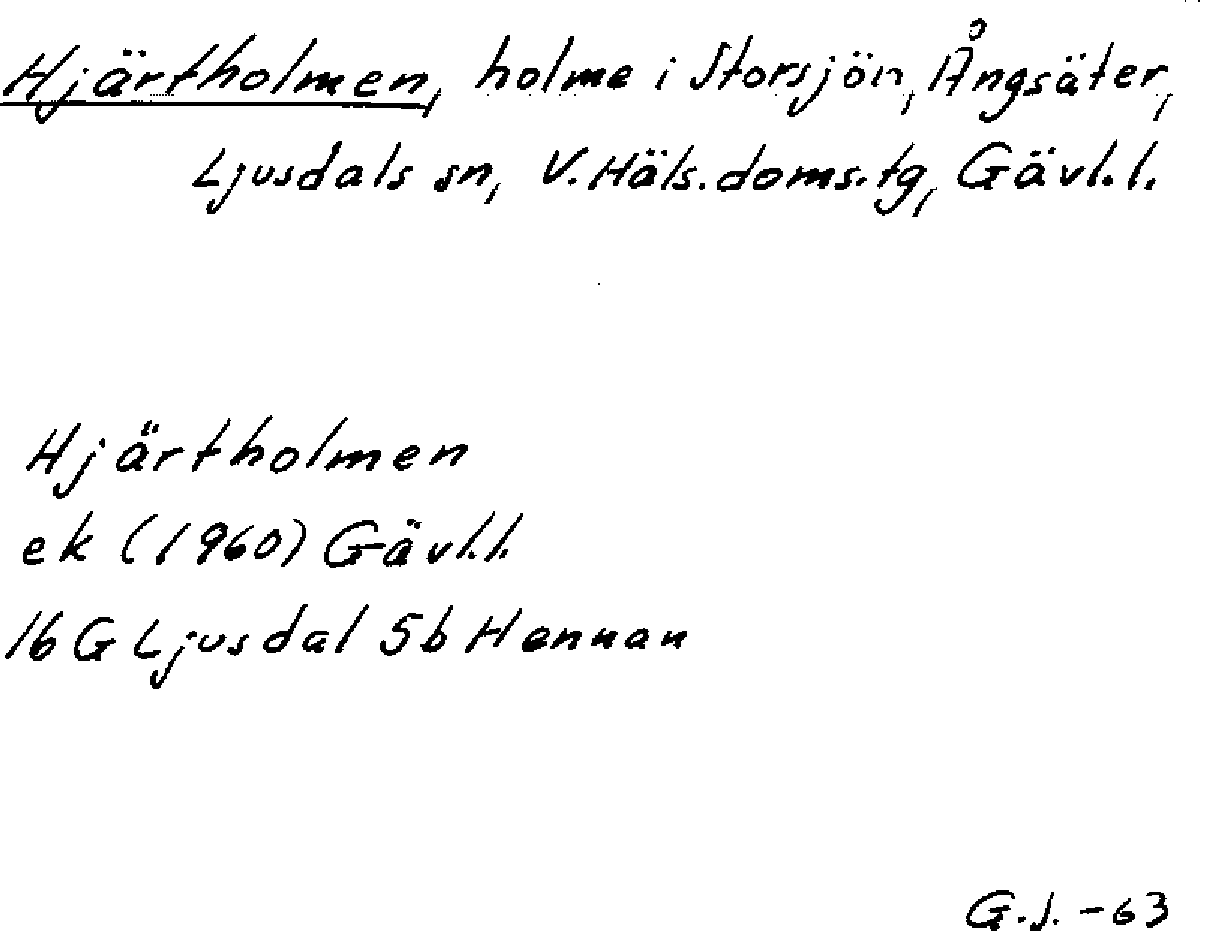 Hjärtholmen, holme i Storsjön, Ångsäter,
Ljusdals sn, V.Häls.doms.tg, Gävl.l.
Hjärtholmen
ek (1960) Gävl.l.
16 G Ljusdal 5b Hennan
G.J. -63